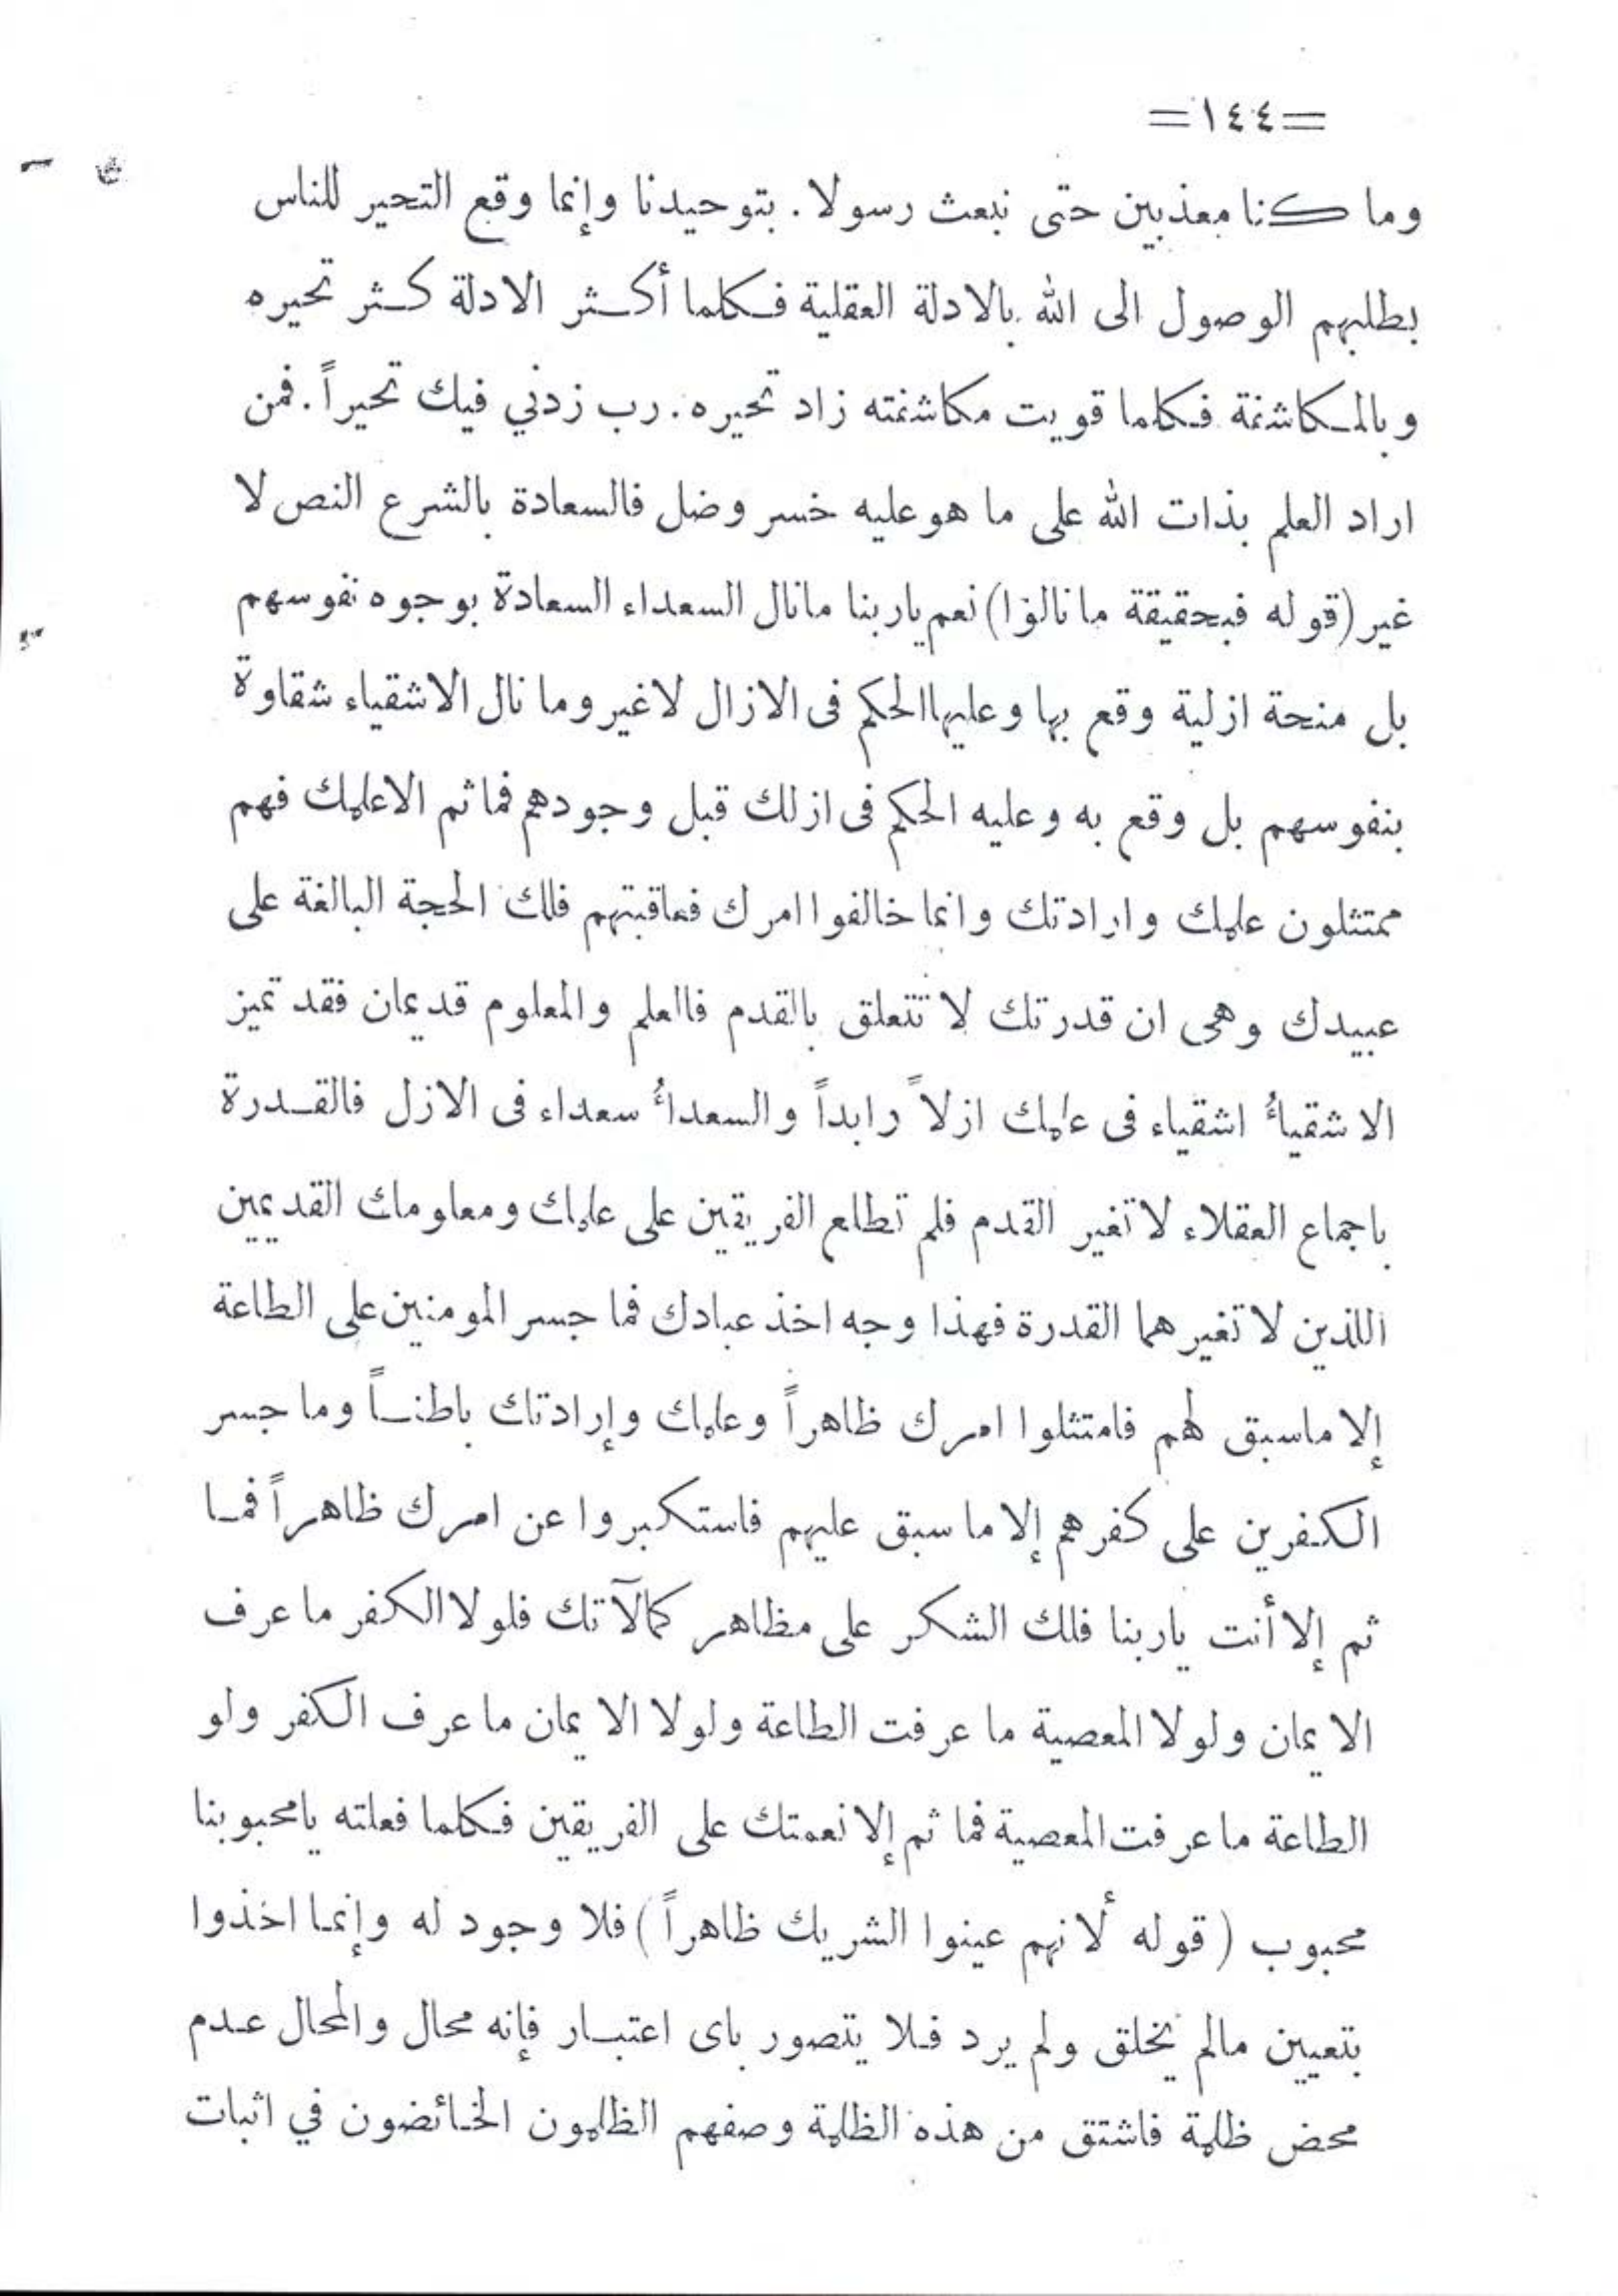 =١٤٤=
وما كنا معذبين حتى نبعث رسولا. بتوحيدنا وإنما وقع التحير للناس
بطلبهم الوصول الى الله بالادلة العقلية فكلما أكثر الادلة كثر تحيره
وبالمكاشفة فكلما قويت مكاشفته زاد تحيره. رب زدني فيك تحيراً. فمن
اراد العلم بذات الله على ما هو عليه خسر وضل فالسعادة بالشرع النص لا
غير (قوله فبحقيقة ما نالوا) نعم ياربنا مانال السعداء السعادة بوجوه نفوسهم
بل منحة ازلية وقع بها وعليها الحكم فى الازال لاغير وما نال الاشقياء شقاوة
بنفوسهم بل وقع به وعليه الحكم فى ازلك قبل وجودهم فما ثم الاعلمك فهم
ممتثلون علمك وارادتك وانما خالفوا امرك فعاقبتهم فلك الحجة البالغة على
عبيدك وهى ان قدرتك لا تتعلق بالقدم فالعلم والمعلوم قديمان فقد تميز
الاشقيأُ اشقياء فى علمك ازلاً وابداً والسعدأُ سعداء فى الازل فالقدرة
باجماع العقلاء لا تغير القدم فلم تطلع الفريقين على علمك ومعلومك القديمين
اللذين لا تغيرهما القدرة فهذا وجه اخذ عبادك فما جسر المومنين على الطاعة
إلا ماسبق لهم فامتثلوا امرك ظاهراً وعلمك وإرادتك باطنـاً وما جسر
الكفرين على كفرهم إلا ما سبق عليهم فاستكبروا عن امرك ظاهراً فمـا
ثم إلا أنت ياربنا فلك الشكر على مظاهر كمالآتك فلولا الكفر ما عرف
الايمان ولولا المعصية ما عرفت الطاعة ولولا الايمان ما عرف الكفر ولو
الطاعة ما عرفت المعصية فما ثم إلا نعمتك على الفريقين فكلما فعلته يامحبوبنا
محبوب (قوله لأنهم عينوا الشريك ظاهراً) فلا وجود له وإنما اخذوا
بتعيين مالم يخلق ولم يرد فلا يتصور باى اعتبـار فإنه محال والمحال عدم
محض ظلمة فاشتق من هذه الظلمة وصفهم الظلمون الخائضون في اثبات